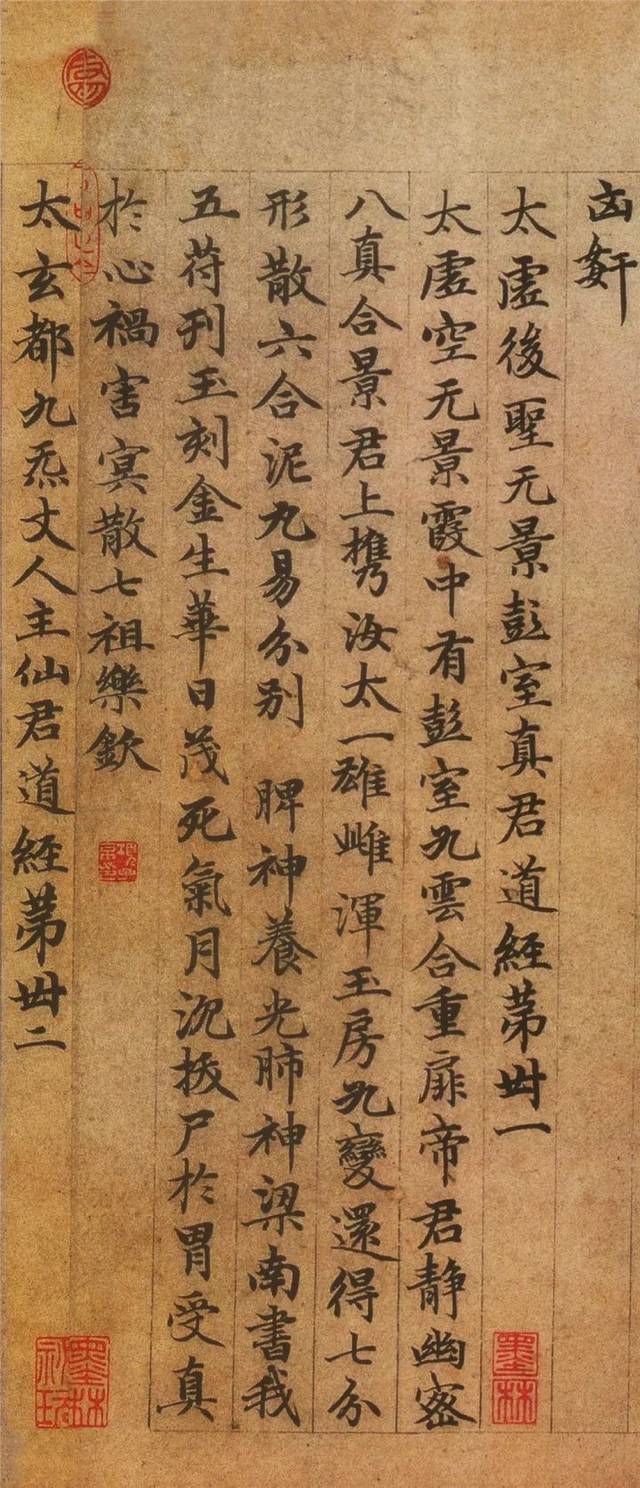 凶奸
太虛後聖无景彭室真君道經苐卅一
太虛空无景霞中有彭室九雲合重扉帝君静幽宻
八真合景君上携汝太一雄雌渾玉房九變還得七分
形散六合泥九易分別 脾神養光肺神梁南書我
五苻刊玉刻金生華日茂死氣月沉拔尸扵胃受真
扵心禍害㝠散七祖樂欽
太玄都九炁丈人主仙君道經苐卅二
墨林
墨林
祕玩